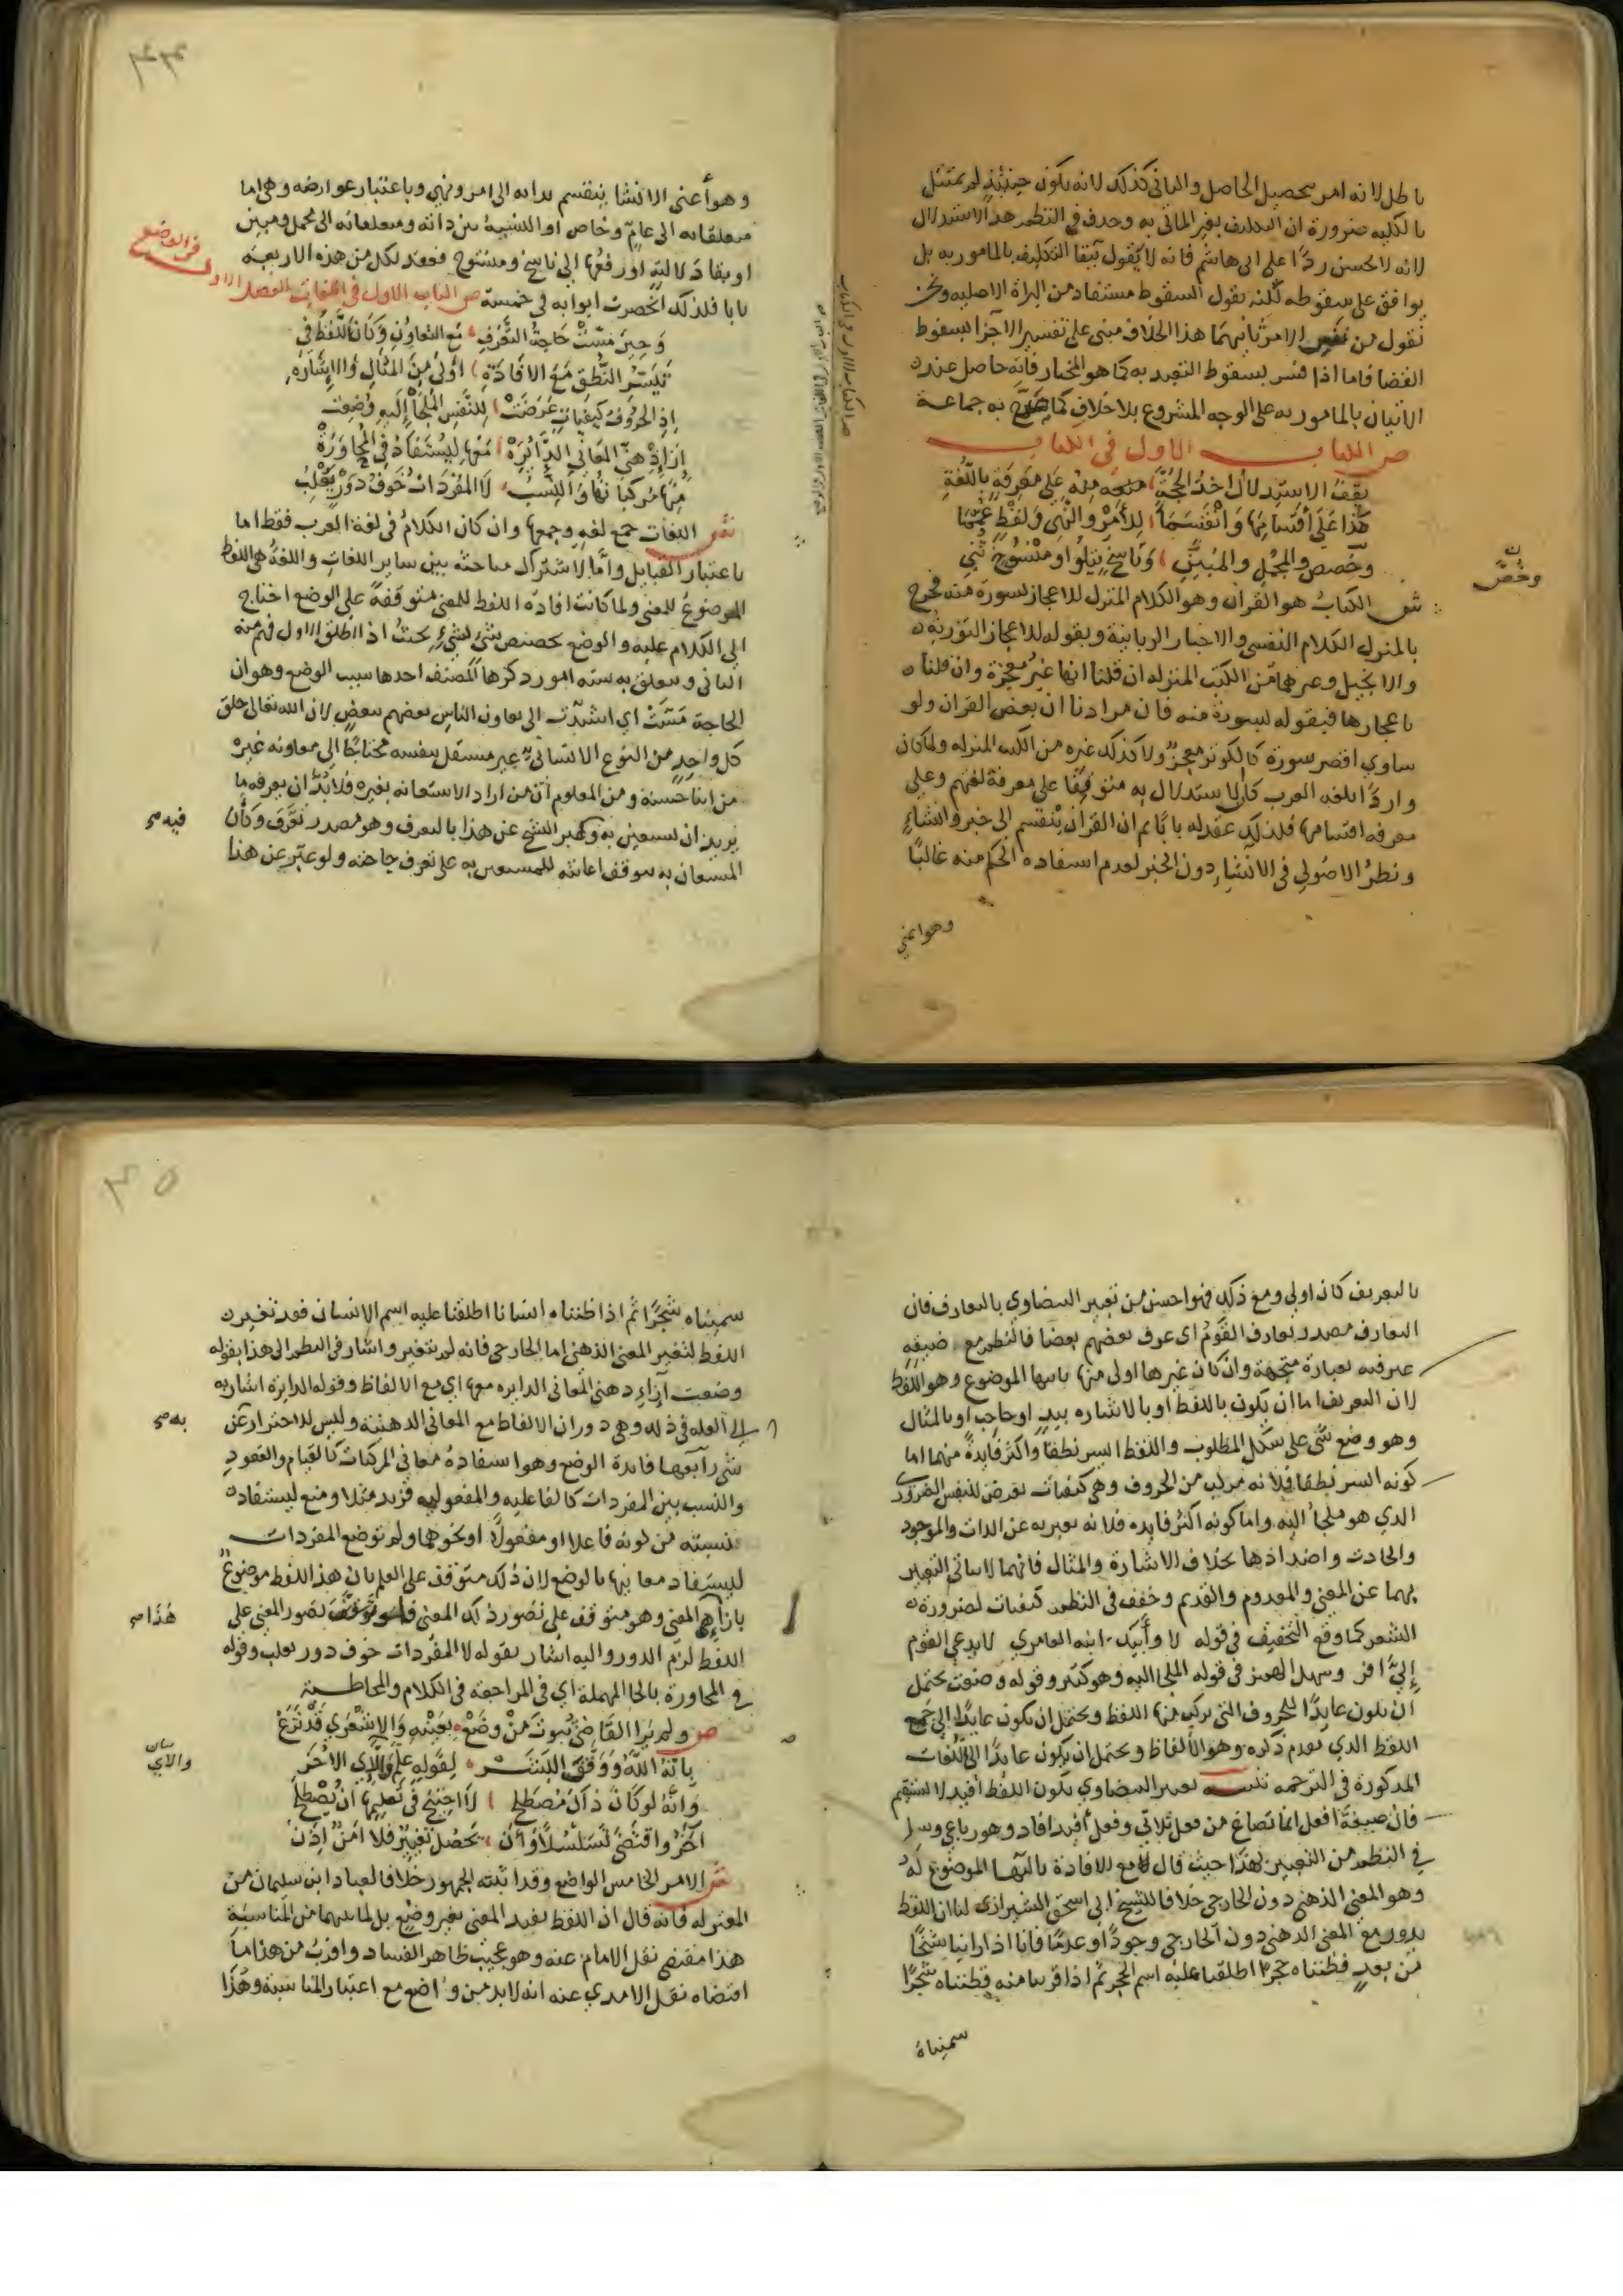 باطل لانه امر بتحصيل الحاصل والثاني كذلك لانه يكون حينئذ لم يمتثل
بالكليه ضرورة ان التكليف بغير الماتى به وحذف في النظم هذا الاستدلال
لانه لا يحسن ردا على ابى هاشم فانه لا يقول ببقا التكليف بالمامور به بل
يوافق على سقوطه لكنه يقول السقوط مستفاد من البراة الاصليه ونحن
نقول من نفس الامر ثانيهما هذا الخلاف مبنى على تفسير الاجزا بسقوط
القضا فاما اذا فسر بسقوط التعبد به كما هو المختار فانه حاصل عند
الاتيان بالمامور به على الوجه المشروع بلا خلاف كما صرح به جماعة
ص الكتاب الاول في الكتاب
يقف الاستدلال اخذ الحجة منه على معرفة باللغة
كذا على أقسامها وانقسما للأمر والنهي ولفظ عمما
وخصص والمجمل والمبين وناسخ يتلو او منسوخ ثني
وخصَّ
ش الكتاب هو القران وهو الكلام المنزل للاعجاز بسورة منه فخرج
بالمنزل الكلام النفسي والاخبار الربانية وبقوله للاعجاز التوريه
والانجيل وغيرهما من الكتب المنزله ان قلنا انها غير معجزة وان قلنا
باعجازها فبقوله بسورة منه فان مرادنا ان بعض القران ولو
ساوي اقصر سورة كالكوثر معجز ولا كذلك غيره من الكتب المنزله ولما كان
واردا بلغه العرب كان الاستدلال به متوقفا على معرفة لغتهم وعلى
معرفه اقسامها فلذلك عقد له بابا ثم ان القران ينقسم الى خبر وانشاء
ونظر الاصولي في الانشاء دون الخبر لعدم استفاده الحكم منه غالبا
وهو اعني
وهو أعنى الانشا ينقسم بذاته الى امر ونهي وباعتبار عوارضه وهي اما
متعلقاته الى عام وخاص او النسبة بين ذاته ومتعلقاته الى مجمل ومبين
او بقا دلالته او رفعها الى ناسخ ومنسوخ فعقد لكل من هذه الاربعه
بابا فلذلك انحصرت ابوابه في خمسة ص الباب الاول في اللغات الفصل الاول
في الوضع
وحين مست حاجة التعرف مع التعاون وكان اللفظ في
تيسر النطق مع الافادة أولى من المثال والاشاره
إذ الحروف كيفيات عرضت للنفس الملجأ إليه وضعت
إزاء ذهني المعاني الدائرة معها ليستفاد في المحاورة
منها مركباتها والنسب لا المفردات خوف دور يغلب
ش اللغات جمع لغه وجمعها وان كان الكلام في لغة العرب فقط اما
باعتبار القبايل واما لاشتراك مباحثه بين ساير اللغات واللغة هي اللفظ
الموضوع للمعنى ولما كانت افادة اللفظ للمعنى متوقفة على الوضع احتاج
الى الكلام عليه والوضع تخصيص شي بشيء بحيث اذا اطلق الاول فهم منه
الثاني ويتعلق به سته امور ذكرها المصنف احدها سبب الوضع وهو ان
الحاجة مست اي اشتدت الى تعاون الناس بعضهم ببعض لان الله تعالى خلق
كل واحد من النوع الانساني غير مستقل بنفسه محتاجا الى معاونه غيره
من ابنا جنسه ومن المعلوم ان من اراد الاستعانه بغيره فلا بد ان يعرفه ما
يريد ان يستعين به وعبر الشيخ عن هذا بالتعرف وهو مصدر تعرف وكأن
فيه صح
المستعان به يتوقف اعانته للمستعين به على تعرف حاجته ولو عبر عن هذا
بالتعريف كان اولى ومع ذلك فهو احسن من تعبير البيضاوي بالتعارف فان
التعارف مصدر تعارف القوم اي عرف بعضهم بعضا فالنظم مع ضيقه
عبر فيه بعبارة متجهة وان كان غيرها اولى منها ثانيها الموضوع وهو اللفظ
لان التعريف اما ان يكون باللفظ او بالاشاره بيد او حاجب او بالمثال
وهو وضع شي على شكل المطلوب واللفظ ايسر نطقا واكثر فايدة منهما اما
كونه ايسر نطقا فلانه مركب من الحروف وهي كيفيات تعرض للنفس الضروري
الذي هو ملجأ اليه واما كونه اكثر فايده فلانه يعبر به عن الذات والموجود
والحادث واضدادها بخلاف الاشارة والمثال فانهما لا ياتى التعبير
بهما عن المعنى والمعدوم والقديم وخفف في النظم كيفيات لضرورة
الشعر كما وقع التخفيف في قوله لا وأبيك ابنه العامري لا يدعي القوم
إنيّ افر وسهل الهمز في قوله الملجا اليه وهو كثير وقوله وضعت يحتمل
ان يكون عايدا للحروف التي تركب منها اللفظ ويحتمل ان يكون عايدا الى جمع
اللفظ الذي تقدم ذكره وهو الالفاظ ويحتمل ان يكون عايدا الى اللغات
المذكورة في الترجمه تنبيه تعبير البيضاوي بكون اللفظ افيد لا يستقيم
فان صيغة افعل انما تصاغ من فعل ثلاثي وفعل أفيد افاد وهو رباعي وسلم
في النظم من التعبير بهذا حيث قال مع الافادة ثالثها الموضوع له
وهو المعنى الذهني دون الخارجي خلافا للشيخ ابى اسحق الشيرازى لنا ان اللفظ
يدور مع المعنى الذهني دون الخارجي وجودا وعدما فانا اذا راينا شبحا
من بعد فظنناه حجرا اطلقنا عليه اسم الحجر ثم اذا قربنا منه فظنناه شجرا
سميناه
٣٥
سميناه شجرا ثم اذا ظنناه انسانا اطلقنا عليه اسم الانسان فقد تغير
اللفظ لتغير المعنى الذهني اما الخارجي فانه لم يتغير واشار في النظم الى هذا بقوله
وضعت إزاء ذهني المعاني الدايره معها اي مع الالفاظ وقوله الدايرة اشار به
الى العله في ذلك وهي دوران الالفاظ مع المعاني الذهنية وليس للاحتراز عن
به صح
شي رابعها فايدة الوضع وهو استفادة معاني المركبات كالقيام والقعود
والنسب بين المفردات كالفاعليه والمفعوليه فزيد مثلا وضع ليستفاد
نسبته من كونه فاعلا او مفعولا او نحوهما ولم توضع المفردات
ليستفاد معانيها بالوضع لان ذلك متوقف على العلم بان هذا اللفظ موضوع
بازاء المعنى وهو متوقف على تصور ذلك المعنى فلو توقف تصور المعنى على
هذا صح
اللفظ لزم الدور واليه اشار بقوله لا المفردات خوف دور يغلب وقوله
في المحاورة بالحا المهملة اي في المراجعة في الكلام والمخاطبة
ص ولم ير القاضي ثبوت من وضع بعينه والاشعري قد نزع
بأنه الله ووقف البشر لقوله علم والآي الأخر
وأنه لو كان ذا أن يصطلح لاحتيج في تعليمها أن يصطلح
آخر واقتضى تسلسلا وأن يحصل تغيير فلا أمن إذن
ش الامر الخامس الواضع وقد اثبته الجمهور خلافا لعباد ابن سليمان من
المعتزله فانه قال ان اللفظ يفيد المعنى بغير وضع بل لما بينهما من المناسبة
هذا مقتضى نقل الامام عنه وهو عجيب ظاهر الفساد واقرب من هذا ما
اقتضاه نقل الامدي عنه انه لا بد من واضع مع اعتبار المناسبة وهذا